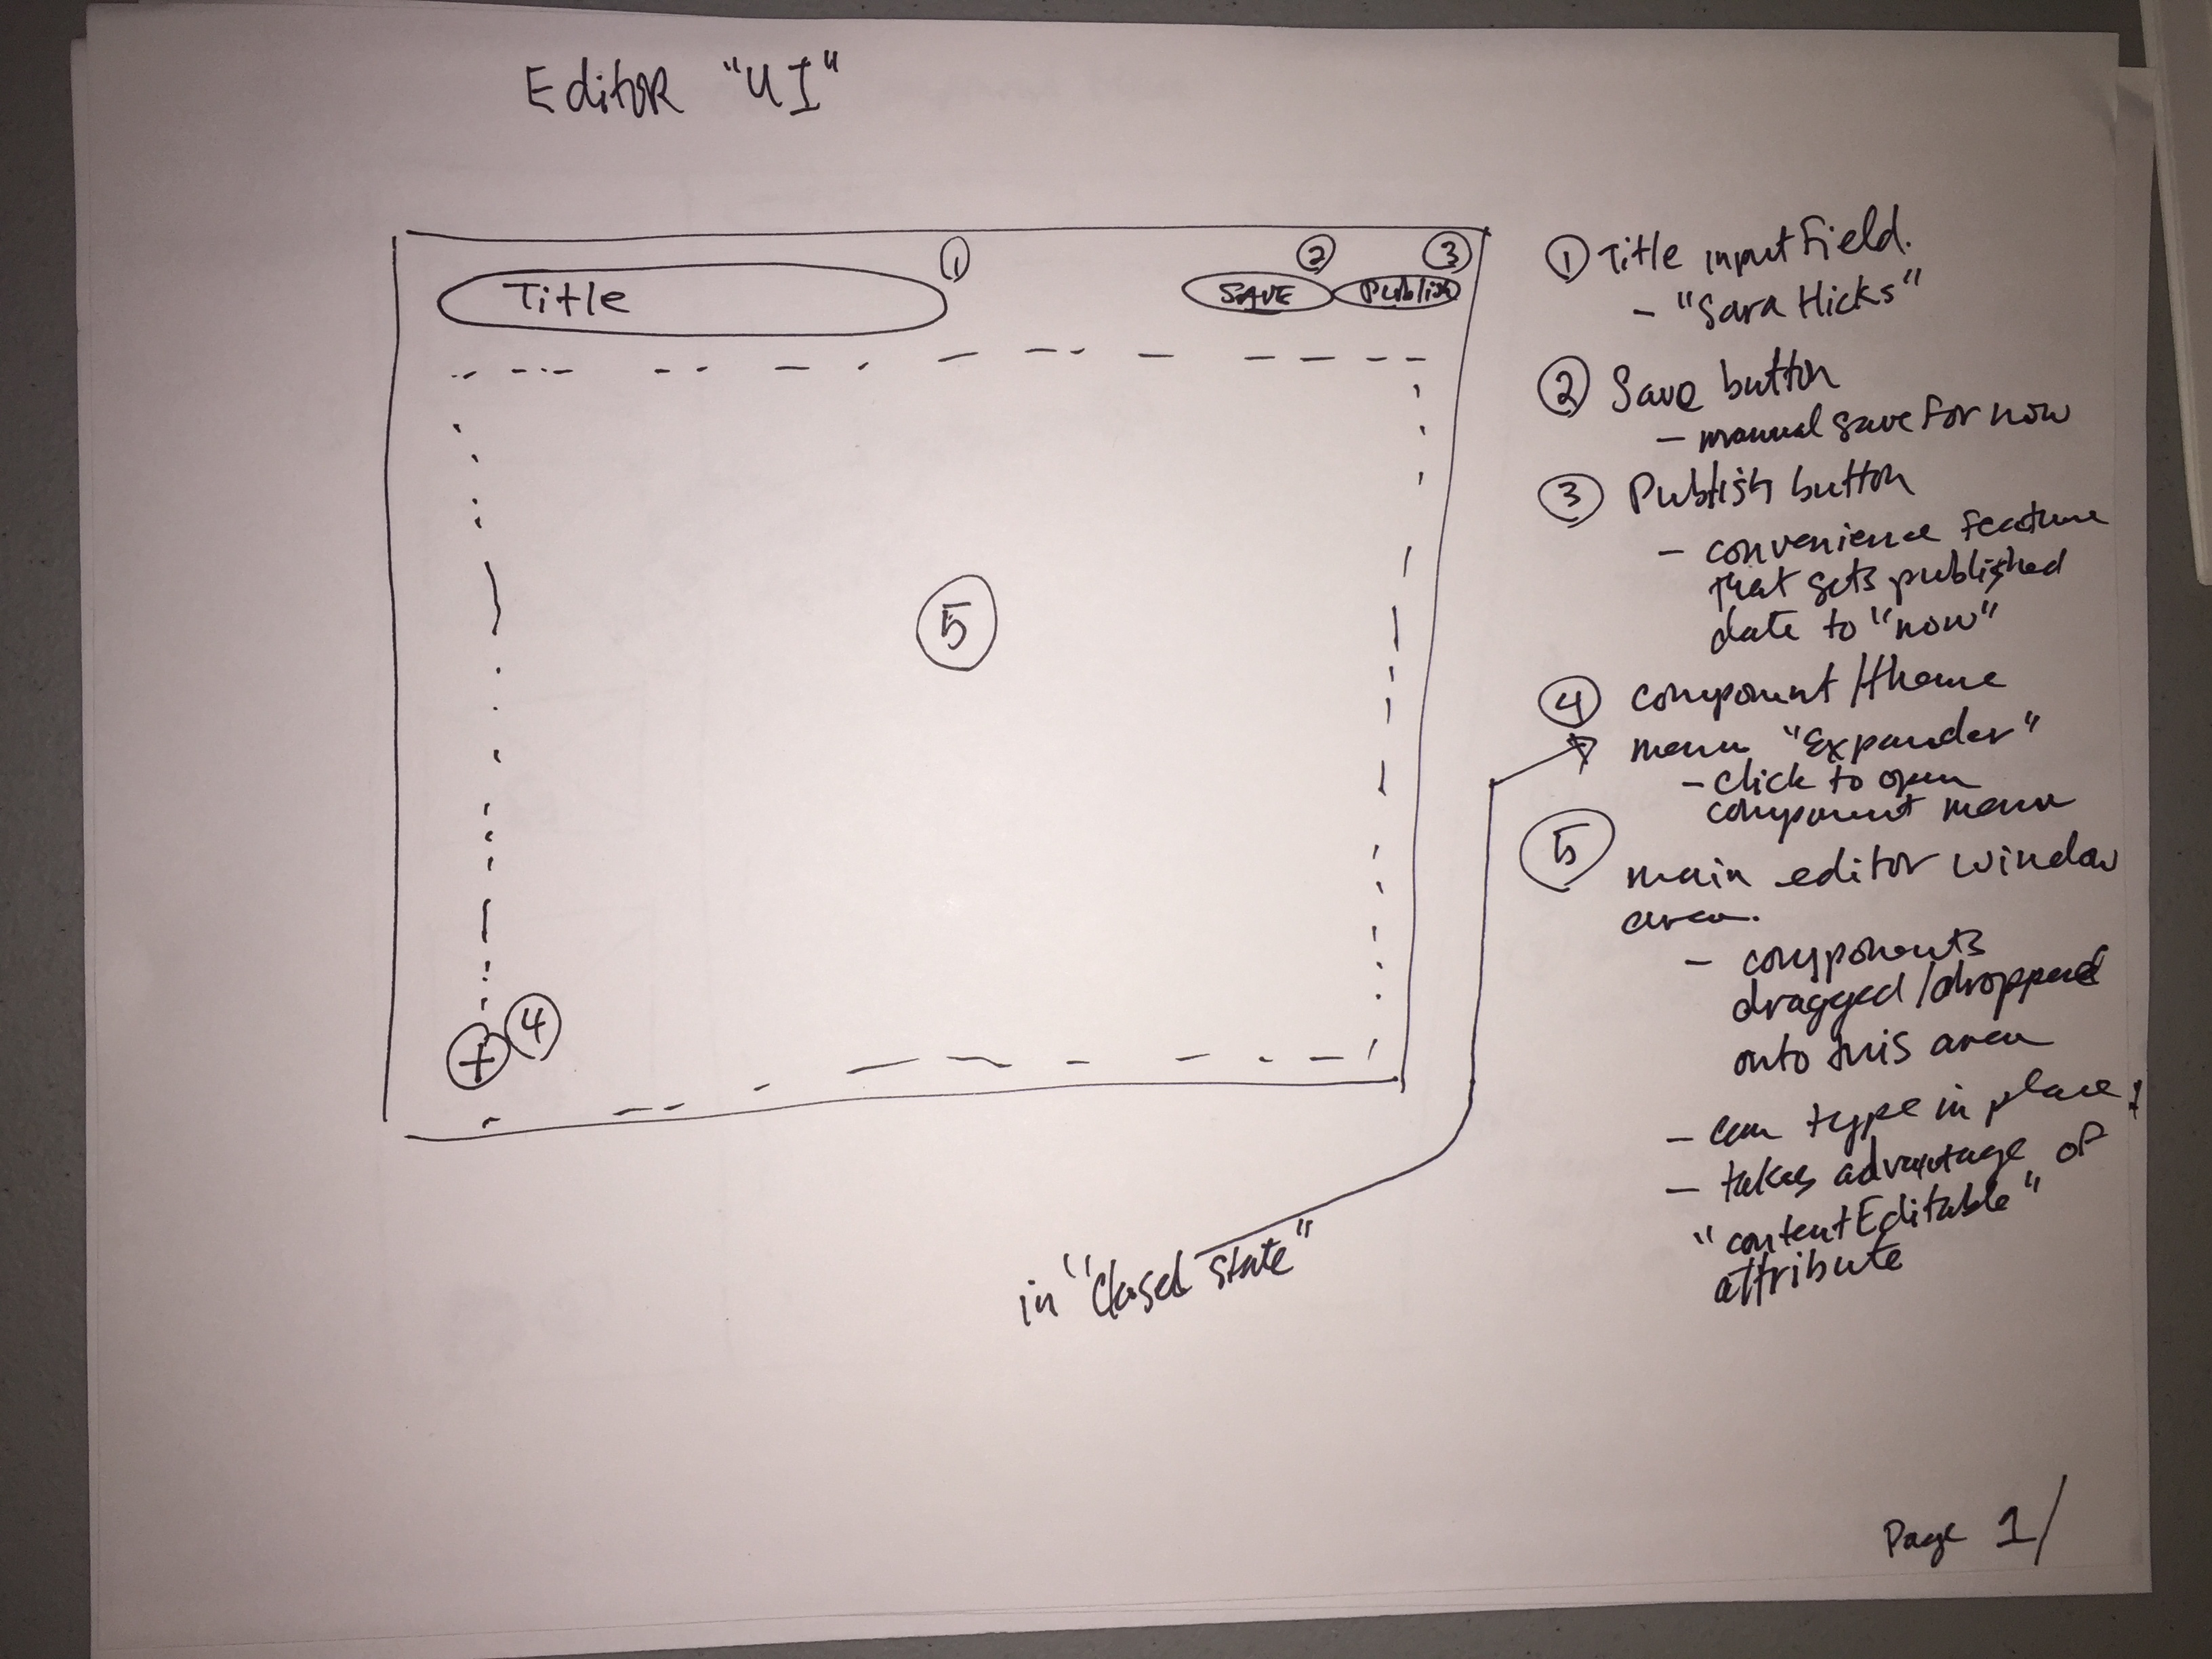 Editor "UI"
1
2
3
Title
SAVE
Publish
5
4
+
in "Closed state"
1 Title input field.
- "Sara Hicks"
2 Save button
- manual save for now
3 Publish button
- convenience feature
that sets published
date to "now"
4 component/theme
menu "Expander"
- click to open
component menu
5 main editor window
area.
- components
dragged/dropped
onto this area
- can type in place,
- takes advantage of
"contentEditable"
attribute
Page 1/